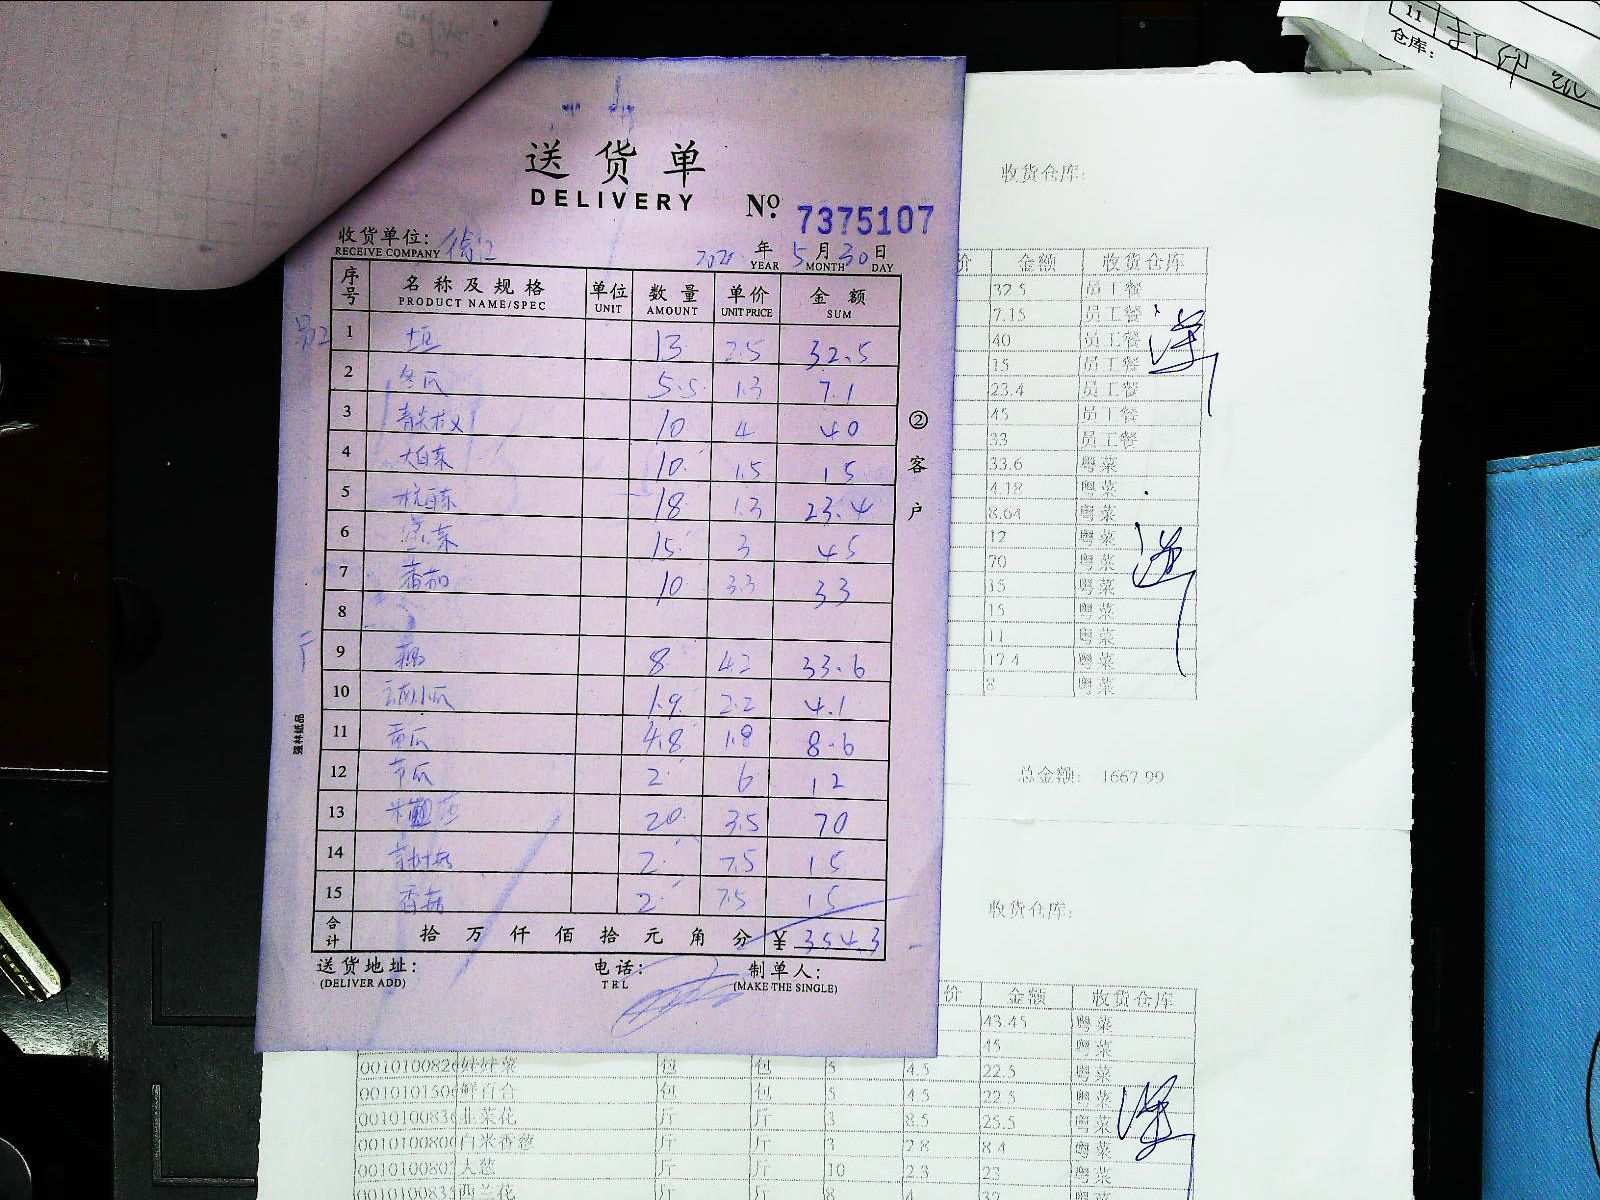 11
仓库:
打印纸
送货单
DELIVERY
No. 7375107
收货单位:
RECEIVE COMPANY
年 5月30日
YEAR MONTH DAY
序号 名称及规格 单位 数量 单价 金额
PRODUCT NAME/SPEC UNIT AMOUNT UNIT PRICE SUM
1 13 2.5 32.5
2 冬瓜 5.5 1.3 7.1
3 10 4 40
4 大白菜 10 1.5 15
5 杭白菜 18 1.3 23.4
6 15 3 45
7 番茄 10 3.3 33
8
9 藕 8 4.2 33.6
10 1.9 2.2 4.1
11 黄瓜 4.8 1.8 8.6
12 节瓜 2 6 12
13 20 3.5 70
14 2 7.5 15
15 香菇 2 7.5 15
合计 拾万仟佰拾元角分 ¥ 354.3
送货地址: 电话: 制单人:
(DELIVER ADD) TEL (MAKE THE SINGLE)
②客户
强林纸品
收货仓库:
价 金额 收货仓库
32.5 员工餐
7.15 员工餐
40 员工餐
15 员工餐
23.4 员工餐
45 员工餐
33 员工餐
33.6 粤菜
4.18 粤菜
8.64 粤菜
12 粤菜
70 粤菜
15 粤菜
15 粤菜
11 粤菜
17.4 粤菜
8 粤菜
总金额: 1667.99
收货仓库:
价 金额 收货仓库
43.45 粤菜
45 粤菜
0010100826 娃娃菜 包 包 5 4.5 22.5 粤菜
0010101506 鲜百合 包 包 5 4.5 22.5 粤菜
0010100836 韭菜花 斤 斤 3 8.5 25.5 粤菜
0010100800 白米香葱 斤 斤 3 2.8 8.4 粤菜
001010080 大葱 斤 斤 10 2.3 23 粤菜
001010083 西兰花 斤 斤 8 4 32 粤菜